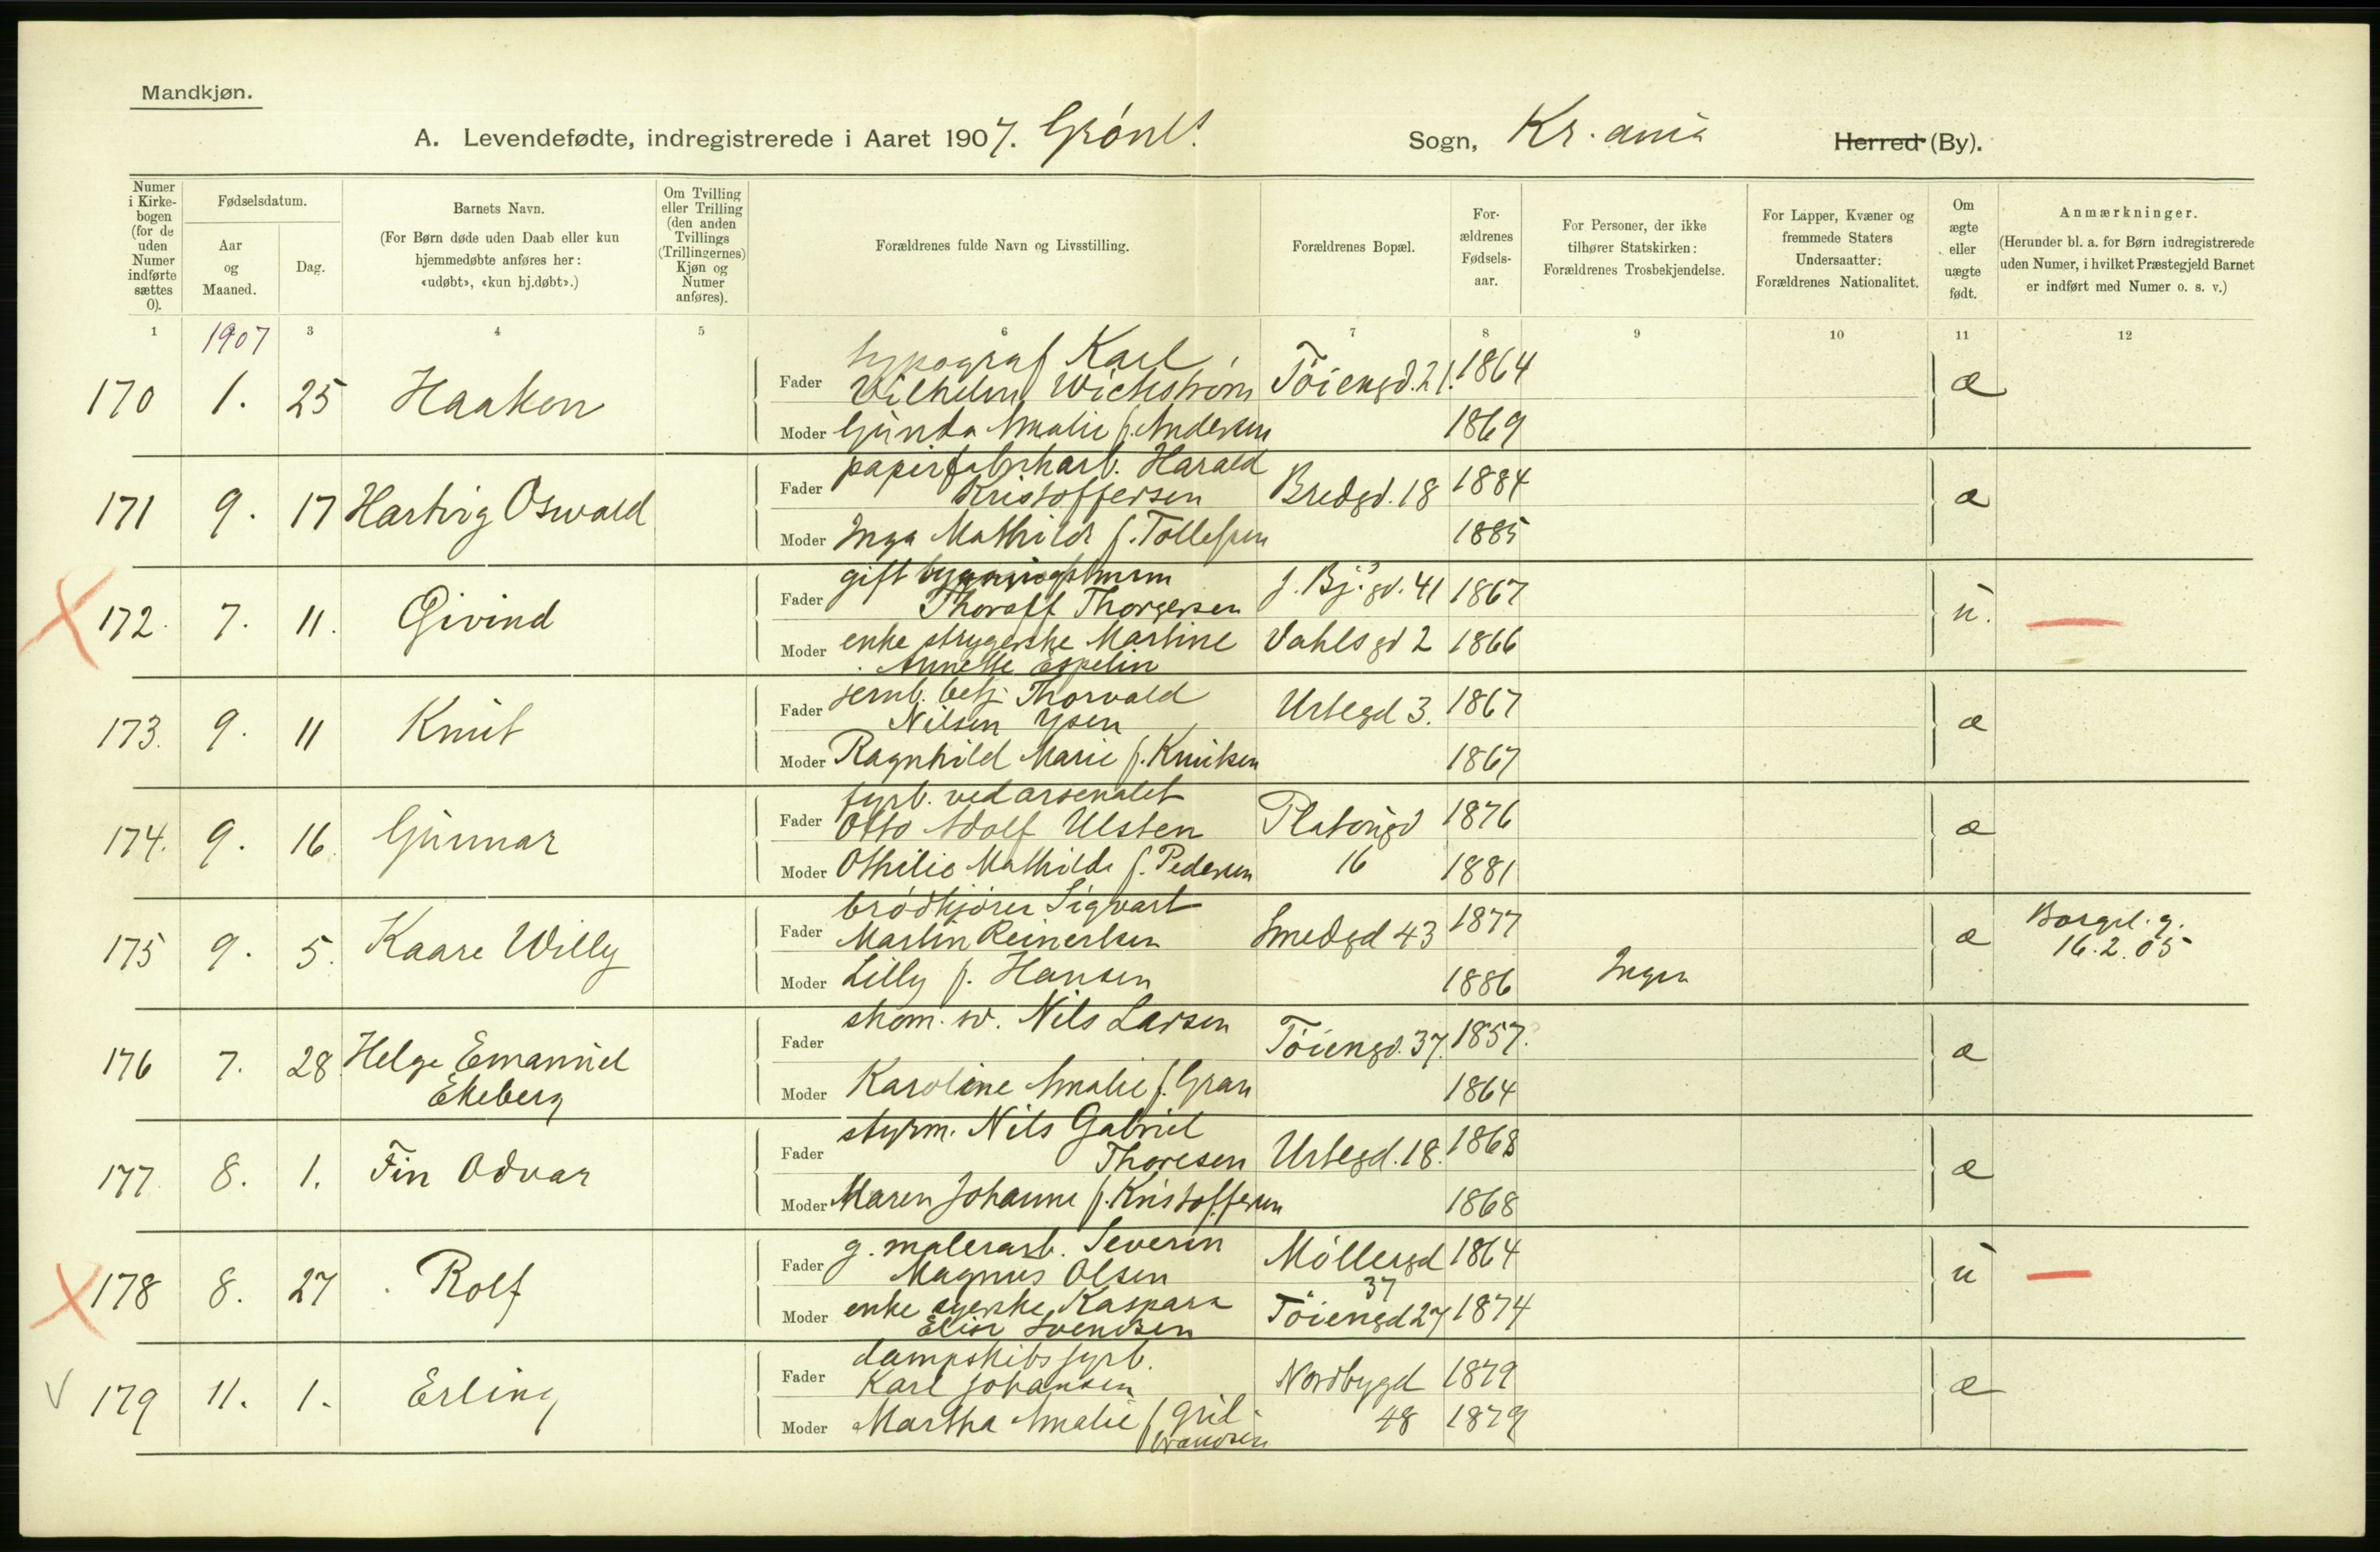 Mandkjøn.
A. Levendefødte, indregistrerede i Aaret 1907. Grønl. Sogn, Kr.ania Herred (By).
Numer i Kirke-bogen (for de uden Numer indførte sættes 0).
Fødselsdatum.
Aar og Maaned.
Dag.
Barnets Navn.
(For Børn døde uden Daab eller kun hjemmedøbte anføres her: «udøbt», «kun hj.døbt».)
Om Tvilling eller Trilling (den anden Tvillings (Trillingernes) Kjøn og Numer anføres).
Forældrenes fulde Navn og Livsstilling.
Forældrenes Bopæl.
For-ældrenes Fødsels-aar.
For Personer, der ikke tilhører Statskirken: Forældrenes Trosbekjendelse.
For Lapper, Kvæner og fremmede Staters Undersaatter: Forældrenes Nationalitet.
Om ægte eller uægte født.
Anmærkninger.
(Herunder bl. a. for Børn indregistrerede uden Numer, i hvilket Præstegjeld Barnet er indført med Numer o. s. v.)
1 1907 3 4 5 6 7 8 9 10 11 12
170 1. 25 Haakon Fader typograf Karl Vilhelm Wickstrøm Töiengd. 21. 1864 æ
Moder Gunda Amalie f. Andersen 1869
171 9. 17 Hartvig Oswald Fader papirfabrikarb. Harald Kristoffersen Bredgd. 18 1884 æ
Moder Inga Mathilde f. Tollefsen 1885
172. 7. 11. Øivind Fader gift bygningssnm Thoralf Thorgersen J. Bj. gd. 41 1867 u.
Moder enke strygerske Martine Annette Espelin Vahlsgd 2 1866
173. 9. 11 Knut Fader jernb. betj. Thorvald Nilsen Ysen Urtegd 3. 1867 æ
Moder Ragnhild Marie f. Knutsen 1867
174. 9. 16. Gunnar Fader fyrb. ved arsenalet Otto Adolf Ulsten Platougd 16 1876 æ
Moder Othilie Mathilde f. Pedersen 1881
175 9. 5. Kaare Willy Fader brødkjører Sigvart Martin Reinertsen Smedgd 43 1877 æ Borgrl. g. 16.2.05
Moder Lilly f. Hansen 1886 Ingen
176 7. 28. Helge Emanuel Ekeberg Fader skom. sv. Nils Larsen Töiengd. 37. 1857. æ
Moder Karoline Amalie f. Gran 1864
177 8. 1. Fin Odvar Fader styrm. Nils Gabriel Thoresen Urtegd. 18. 1868 æ
Moder Maren Johanne f. Kristoffersen 1868
178 8. 27 Rolf Fader g. malerarb. Severin Magnus Olsen Möllergd 37 1864 u
Moder enke syerske Kaspara Elise Svendsen Töiengd 27 1874
V 179 11. 1. Erling Fader dampskibsfyrb. Karl Johansen Nordbygd 48 1879 æ
Moder Martha Amalie f. Gulbrandsen 1879